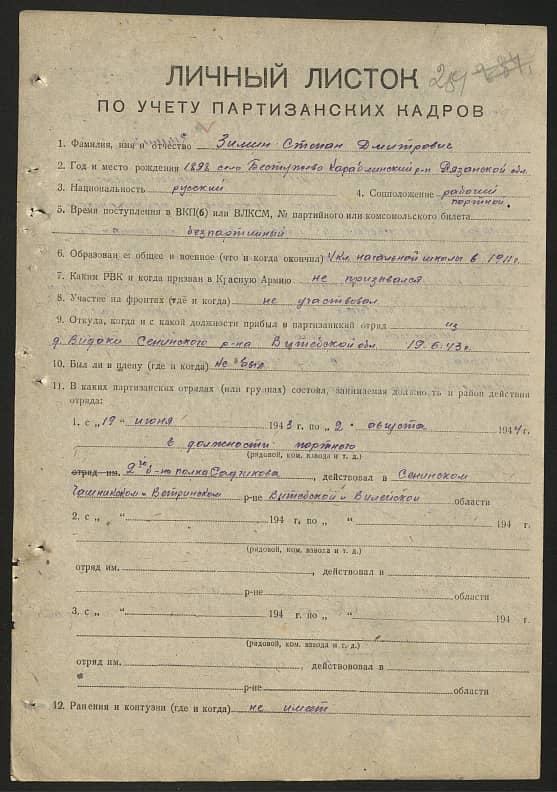 ЛИЧНЫЙ ЛИСТОК
ПО УЧЕТУ ПАРТИЗАНСКИХ КАДРОВ
1. Фамилия, имя и отчество Зимин Степан Дмитрович
2. Год и место рождения 1898 село Бестужево Кораблинский р-н Рязанской обл.
3. Национальность русский 4. Соцположение рабочий
портной.
5. Время поступления в ВКП(б) или ВЛКСМ, № партийного или комсомольского билета
безпартийный
6. Образование общее и военное (что и когда окончил) 4 кл. начальной школы в 1911 г.
7. Каким РВК и когда призван в Красную Армию не призывался
8. Участие на фронтах (где и когда) не участвовал
9. Откуда, когда и с какой должности прибыл в партизанский отряд из
д. Видоки Сенинского р-на Витебской обл. 19.6.43 г.
10. Был ли в плену (где и когда) не был
11. В каких партизанских отрядах (или группах) состоял, занимаемая должность и район действия
отряда:
1. с „19“ июня 1943 г. по „2“ августа 1944 г.
в должности портного
(рядовой, ком. взвода и т. д.)
отряд им. 2го б-т полка Садчикова, действовал в Сенинском
Чашникском и Ветринском р-не Витебской и Вилейской области
2. с „ “ 194 г. по „ “ 194 г.
(рядовой, ком. взвода и т. д.)
отряд им. , действовал в
р-не области
3. с „ “ 194 г. по „ “ 194 г.
(рядовой, ком. взвода и т. д.)
отряд им. , действововал в
р-не области
12. Ранения и контузии (где и когда) не имеет